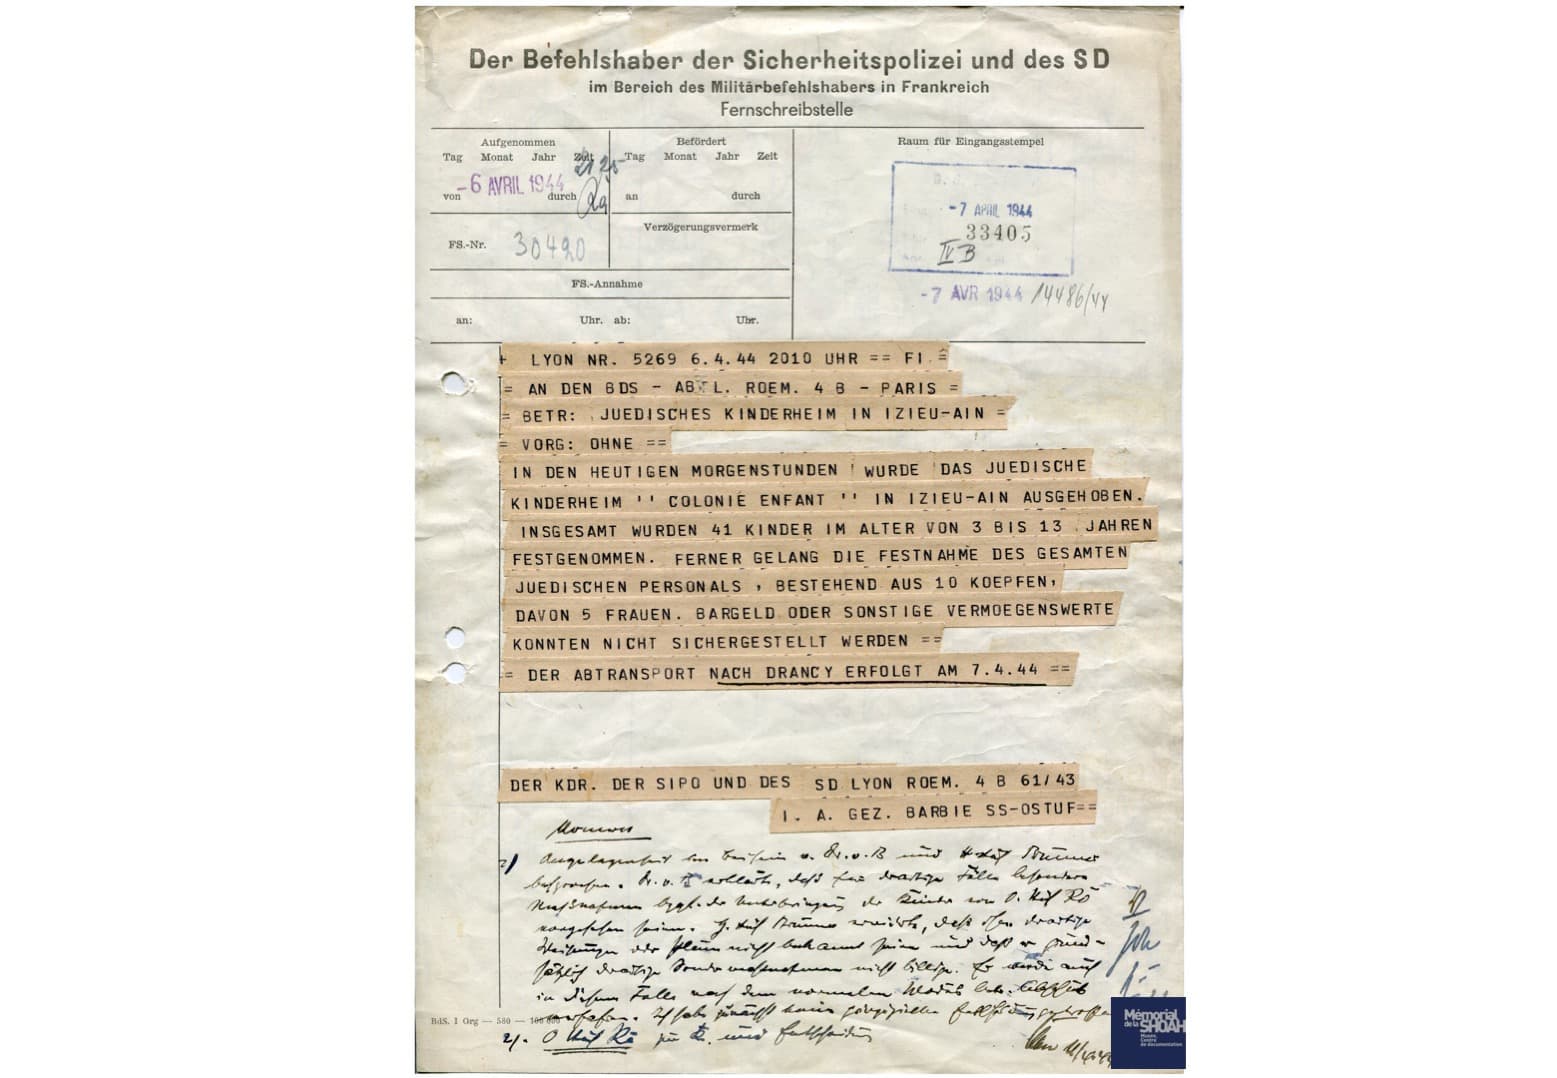 Der Befehlshaber der Sicherheitspolizei und des SD
im Bereich des Militärbefehlshabers in Frankreich
Fernschreibstelle
Aufgenommen
Tag Monat Jahr Zeit
21 25
von -6 AVRIL 1944 durch
Befördert
Tag Monat Jahr Zeit
an durch
Raum für Eingangsstempel
-7 APRIL 1944
33405
IV B
-7 AVR 1944 14486/44
FS.-Nr. 30420
Verzögerungsvermerk
FS.-Annahme
an: Uhr. ab: Uhr.
+ LYON NR. 5269 6.4.44 2010 UHR == FI =
= AN DEN BDS - ABTL. ROEM. 4 B - PARIS =
= BETR: JUEDISCHES KINDERHEIM IN IZIEU-AIN =
= VORG: OHNE ==
IN DEN HEUTIGEN MORGENSTUNDEN WURDE DAS JUEDISCHE
KINDERHEIM '' COLONIE ENFANT '' IN IZIEU-AIN AUSGEHOBEN.
INSGESAMT WURDEN 41 KINDER IM ALTER VON 3 BIS 13 JAHREN
FESTGENOMMEN. FERNER GELANG DIE FESTNAHME DES GESAMTEN
JUEDISCHEN PERSONALS , BESTEHEND AUS 10 KOEPFEN,
DAVON 5 FRAUEN. BARGELD ODER SONSTIGE VERMOEGENSWERTE
KONNTEN NICHT SICHERGESTELLT WERDEN ==
= DER ABTRANSPORT NACH DRANCY ERFOLGT AM 7.4.44 ==
DER KDR. DER SIPO UND DES SD LYON ROEM. 4 B 61/43
I. A. GEZ. BARBIE SS-OSTUF==
Angelegenheit v. Dr. v. B und
besprochen. Dr. v. B erklärte, daß für derartige Fälle besondere
Maßnahmen bzgl. der Unterbringung der Kinder von O.
vorgesehen seien. daß ihm derartige
Weisungen oder Pläne nicht bekannt seien und daß er grund-
sätzlich derartige Sondermaßnahmen nicht billige. Er werde auch
in diesem Falle nach dem normalen Modus
verfahren. Ich habe zunächst keine
2/. O Rö zu K. und Entscheidung
BdS. I Org — 580 —
Mémorial
de la SHOAH
Musée,
Centre
de documentation